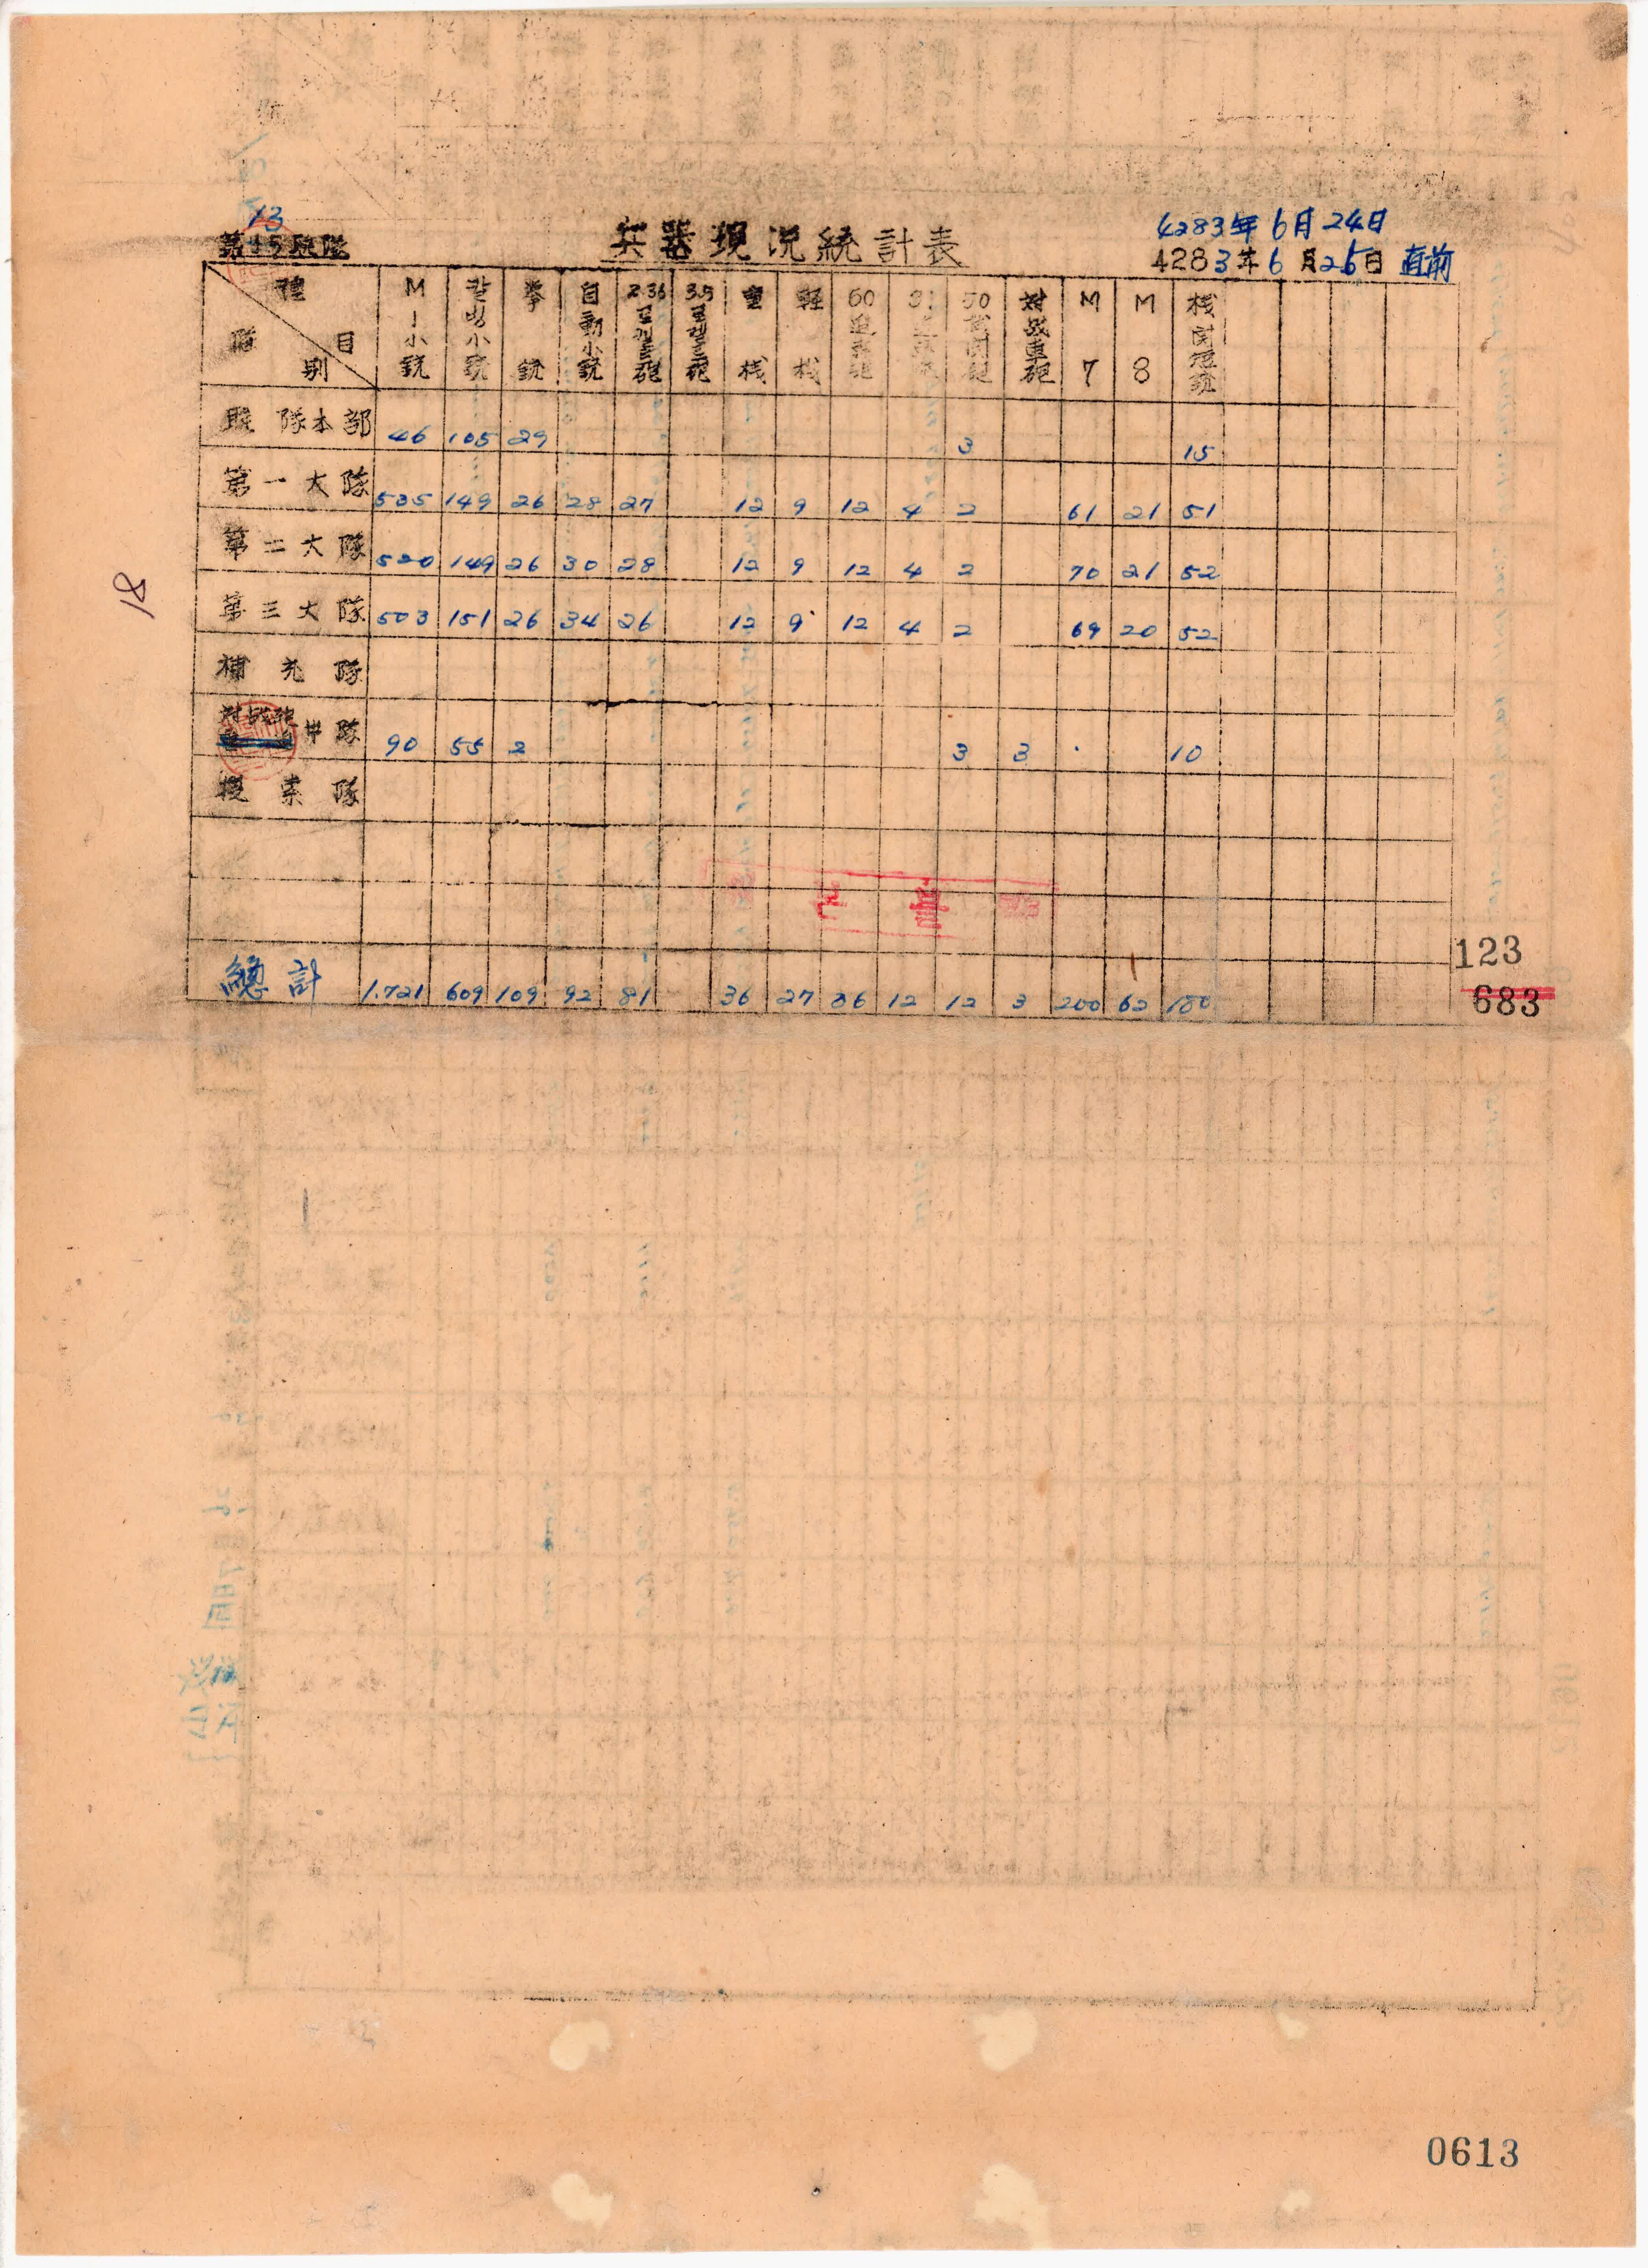 13
第15联隊
兵器現況統計表
4283年6月24日
4283年6月25日 直前
種目 隊別 M1小銃 칼빙小銃 拳銃 自動小銃 2.36로켙트砲 3.5로켙트砲 重機 軽機 60迫撃砲 81迫撃砲 50機関砲 対战車砲 M7 M8 機関短銃
联隊本部 46 105 29 3 15
第一大隊 535 149 26 28 27 12 9 12 4 2 61 21 51
第二大隊 520 149 26 30 28 12 9 12 4 2 70 21 52
第三大隊 503 151 26 34 26 12 9 12 4 2 69 20 52
補充隊
対战砲中隊 90 55 2 3 3 10
捜索隊
總計 1.721 609 109 92 81 36 27 36 12 12 3 200 62 180
18
123
683
0613